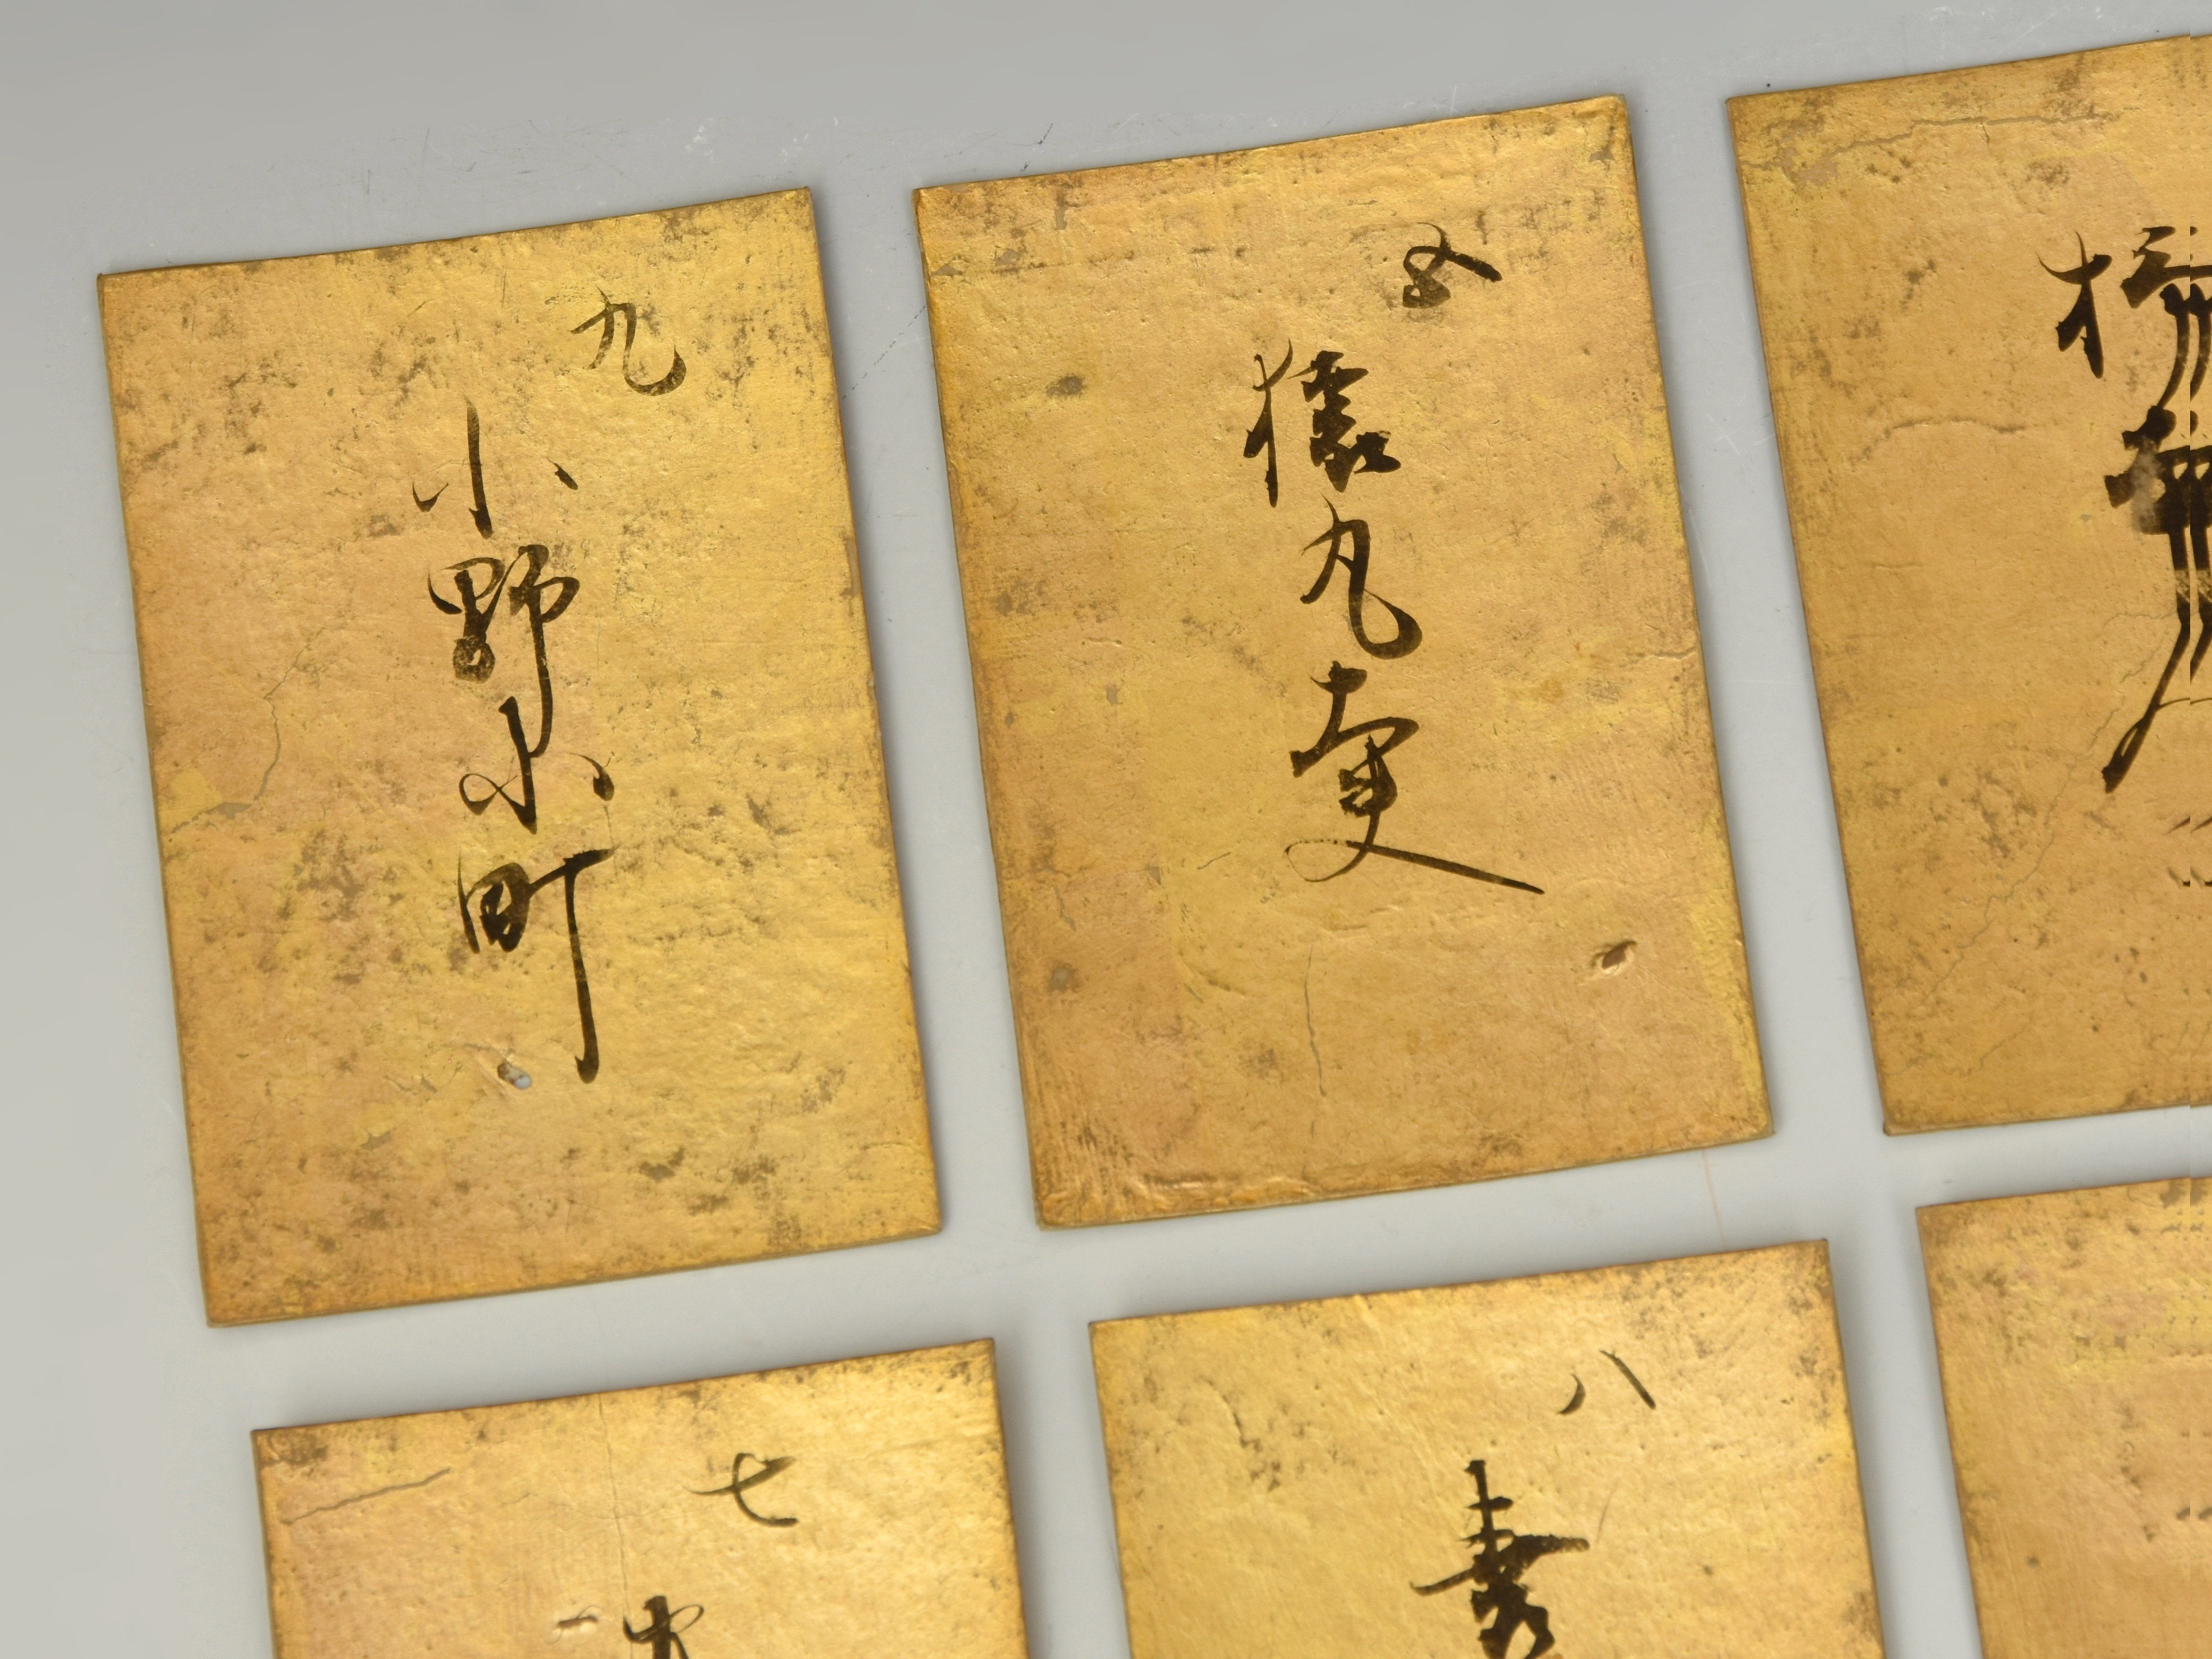 九
小野小町
五
猿丸大夫
柿
七
八
喜